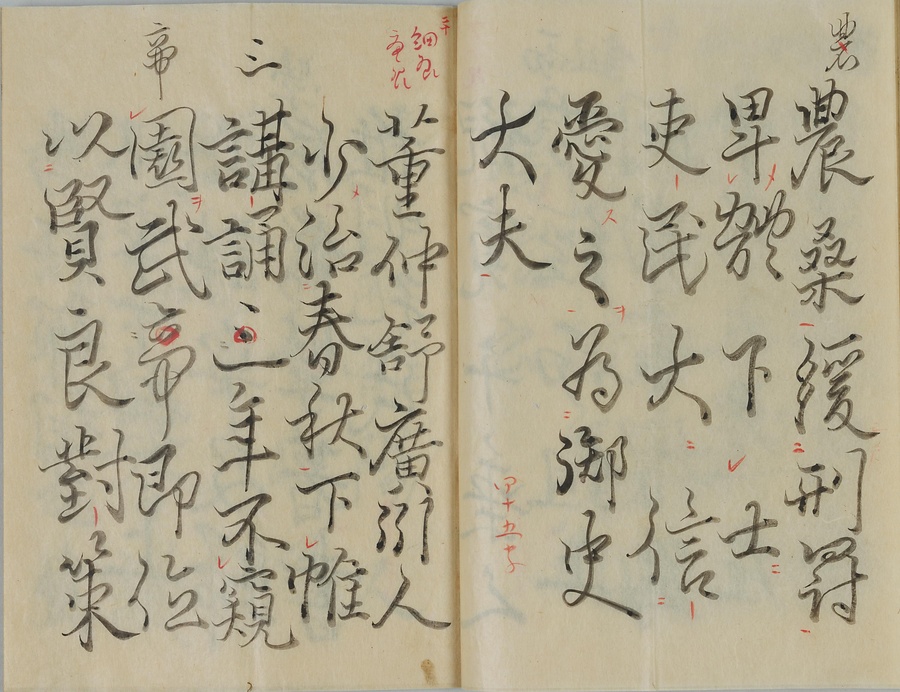 農
農桑緩刑罸
卑體下士
吏民大信
愛之為御史
大夫
四十五字
董仲舒廣川人
少治春秋下帷
三
講誦三年不窺
帝
園武帝即位
以賢良對策